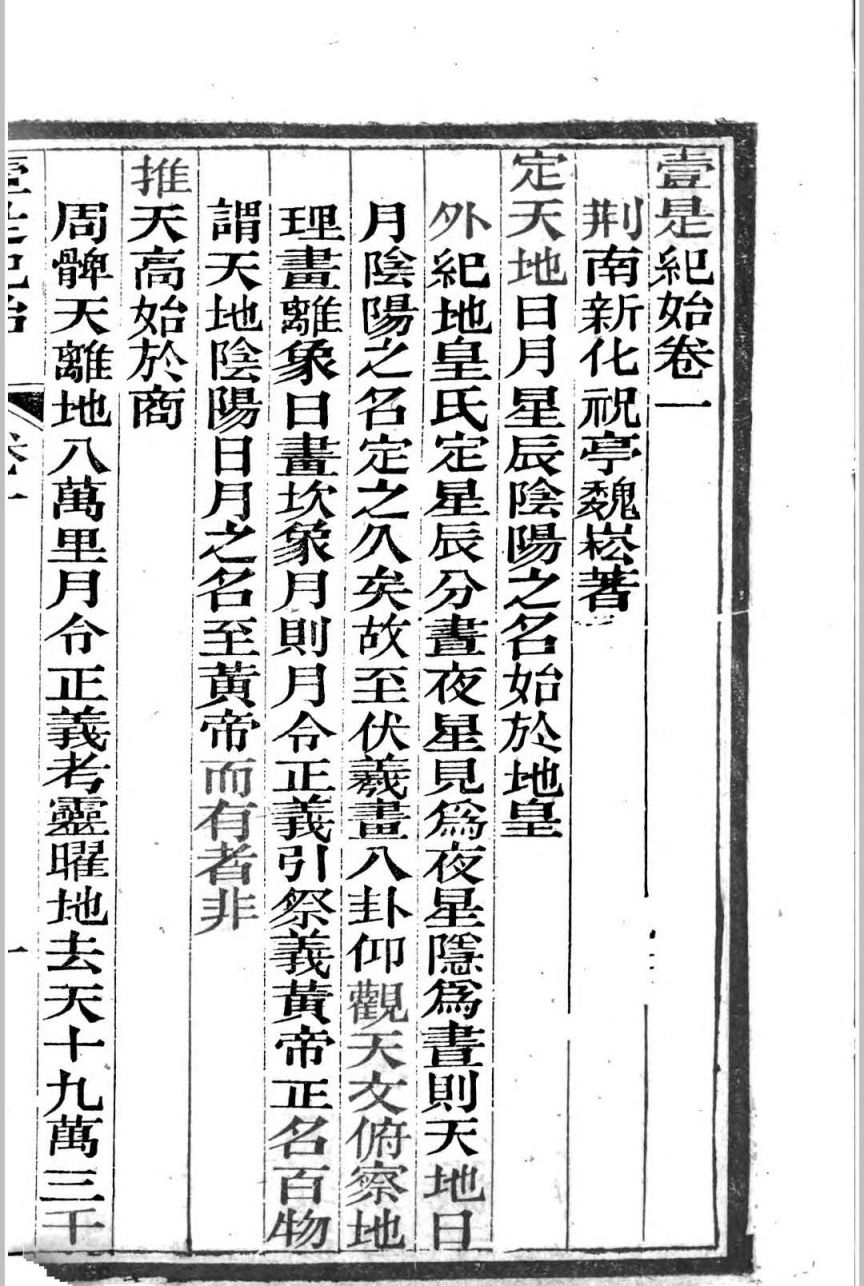 壹是紀始卷一
荆南新化祝亭魏崧著
定天地日月星辰陰陽之名始於地皇
外紀地皇氏定星辰分晝夜星見爲夜星隱爲晝則天地日
月陰陽之名定之久矣故至伏羲畫八卦仰觀天文俯察地
理畫離象日畫坎象月則月令正義引祭義黃帝正名百物
謂天地陰陽日月之名至黃帝而有者非
推天高始於商
周髀天離地八萬里月令正義考靈曜地去天十九萬三千
壹是紀始 卷一 一